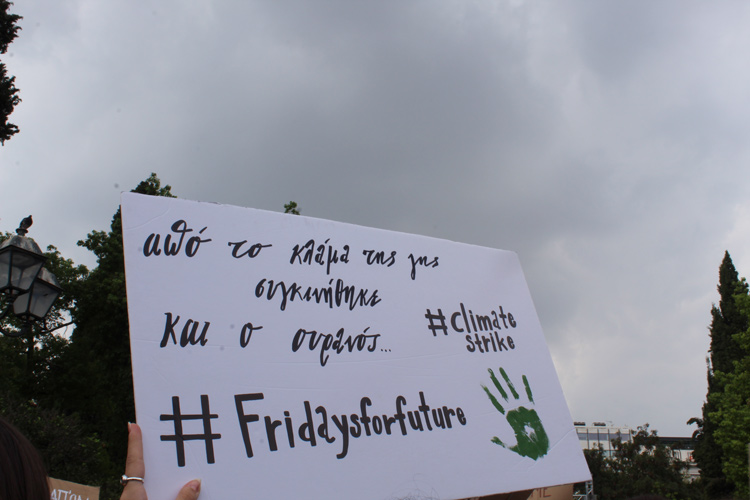 από το κλάμα της γης
συγκινήθηκε
και ο ουρανός...
#climate
strike
#Fridaysforfuture